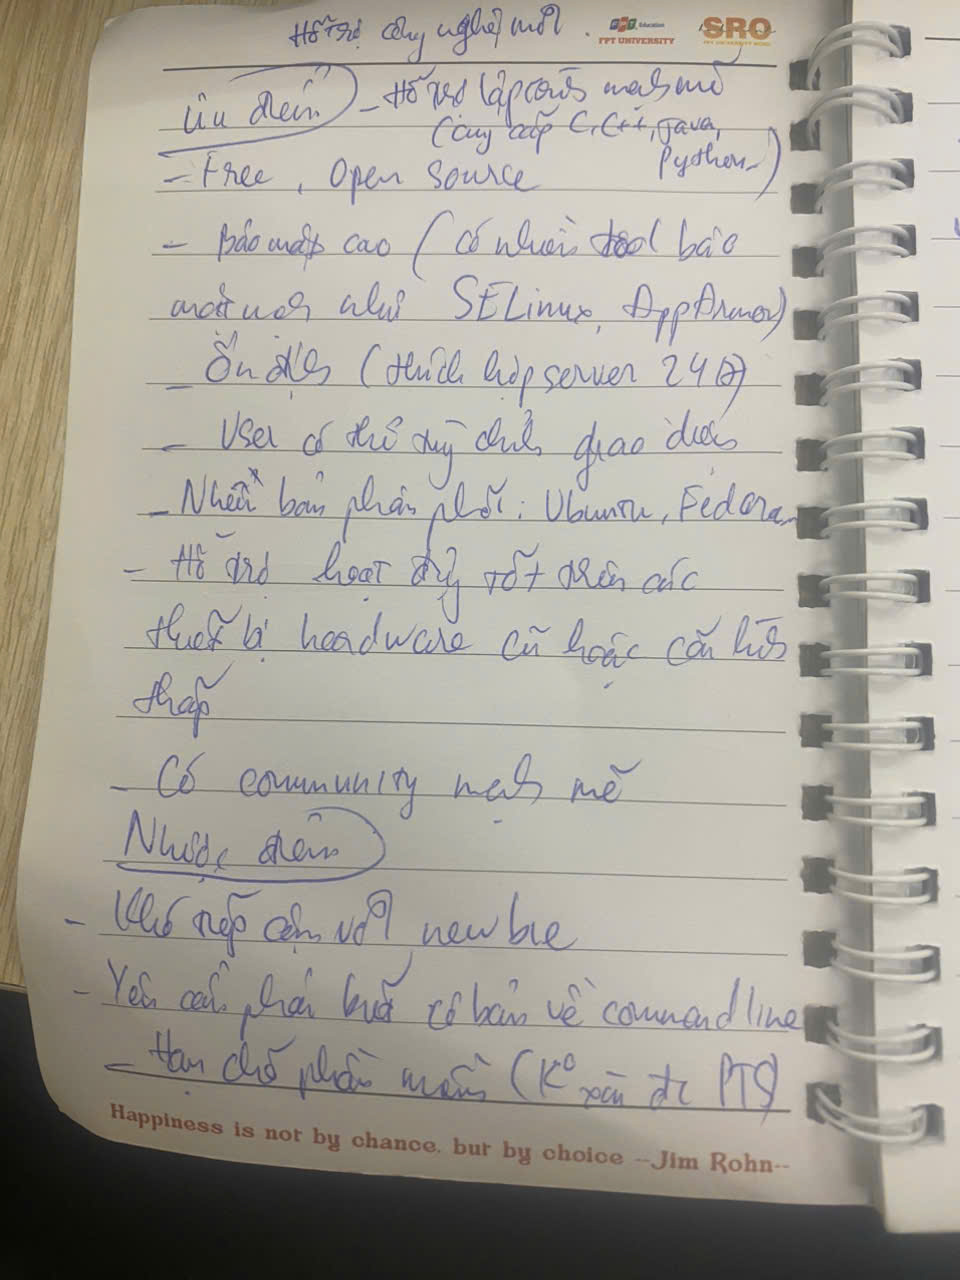 Hỗ trợ công nghệ mới.
FPT Education
FPT UNIVERSITY
SRO
Ưu điểm
- Hỗ trợ lập trình mạnh mẽ
(cung cấp C, C++, Java,
Python..)
- Free, Open Source
- Bảo mật cao (có nhiều tool bảo
mật mạnh như SELinux, AppArmor)
- Ổn định (thích hợp server 24/7)
- User có thể tùy chỉnh giao diện
- Nhiều bản phân phối: Ubuntu, Fedora..
- Hỗ trợ hoạt động tốt trên các
thiết bị heardware cũ hoặc cấu hình
thấp
- Có community mạnh mẽ
Nhược điểm
- Khó tiếp cận với newbie
- Yêu cầu phải biết cơ bản về commandline
- Hạn chế phần mềm (K° xài đc PTS)
Happiness is not by chance, but by choice --Jim Rohn--